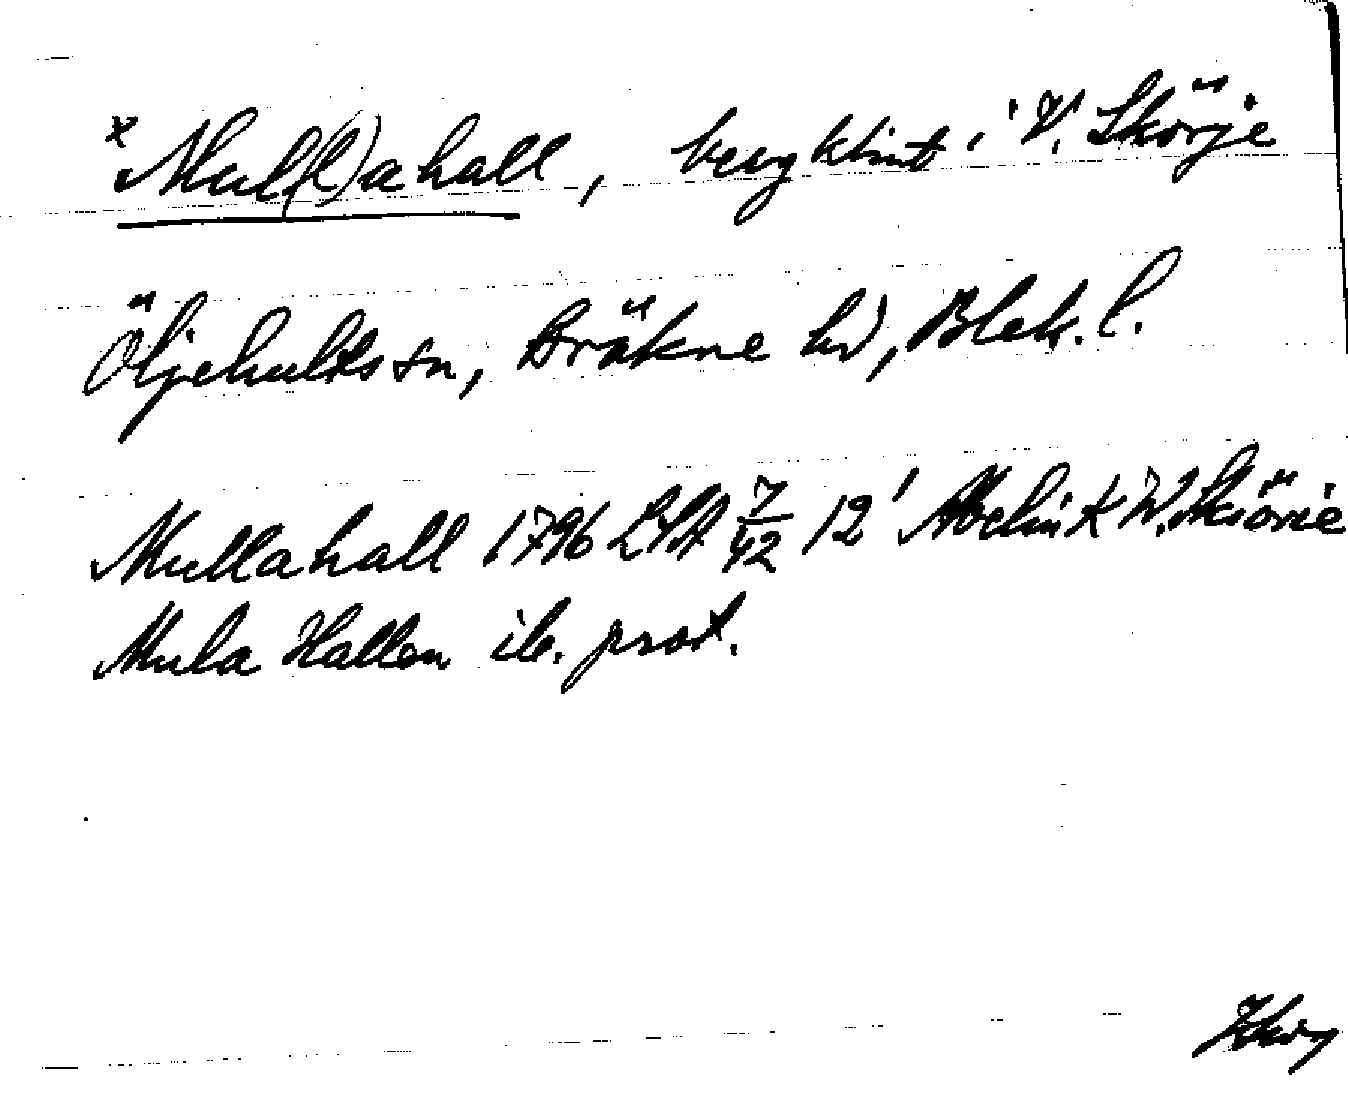 x Mul(l)ahall, bergklint i V. Skörje
Öljehults sn, Bräkne hd, Blek. l.
Mullahall 1796 LSA 7/42 12' W. Skiörie
Mula Hallen ib. prot.